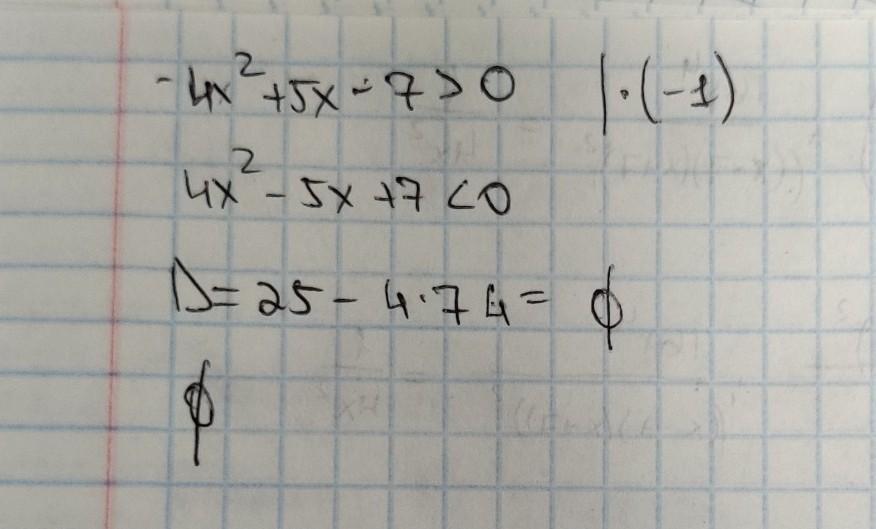 -4x² + 5x - 7 > 0 | · (-1)
4x² - 5x + 7 < 0
D = 25 - 4 · 7 4 = ϕ
ϕ